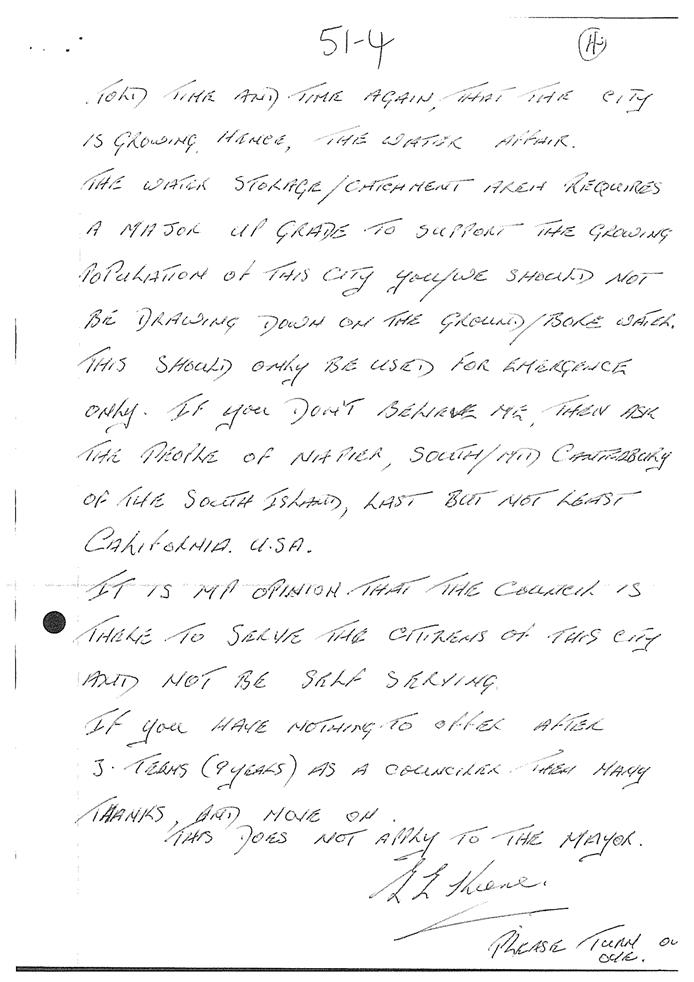 51-4
TOLD TIME AND TIME AGAIN, THAT THE CITY
IS GROWING. HENCE, THE WATER AFFAIR.
THE WATER STORAGE/CATCHMENT AREA REQUIRES
A MAJOR UP GRADE TO SUPPORT THE GROWING
POPULATION OF THIS CITY YOU/WE SHOULD NOT
BE DRAWING DOWN ON THE GROUND/BORE WATER.
THIS SHOULD ONLY BE USED FOR EMERGENCE
ONLY. IF YOU DON'T BELIEVE ME, THEN ASK
THE PEOPLE OF NAPIER, SOUTH/MID CANTERBURY
OF THE SOUTH ISLAND, LAST BUT NOT LEAST
CALIFORNIA. U.SA.
IT IS MY OPINION THAT THE COUNCIL IS
THERE TO SERVE THE CITIZENS OF THIS CITY
AND NOT BE SELF SERVING.
IF YOU HAVE NOTHING TO OFFER AFTER
3. TERMS (9 YEARS) AS A COUNCILER THEN MANY
THANKS, AND MOVE ON.
THIS DOES NOT APPLY TO THE MAYOR.
PLEASE TURN